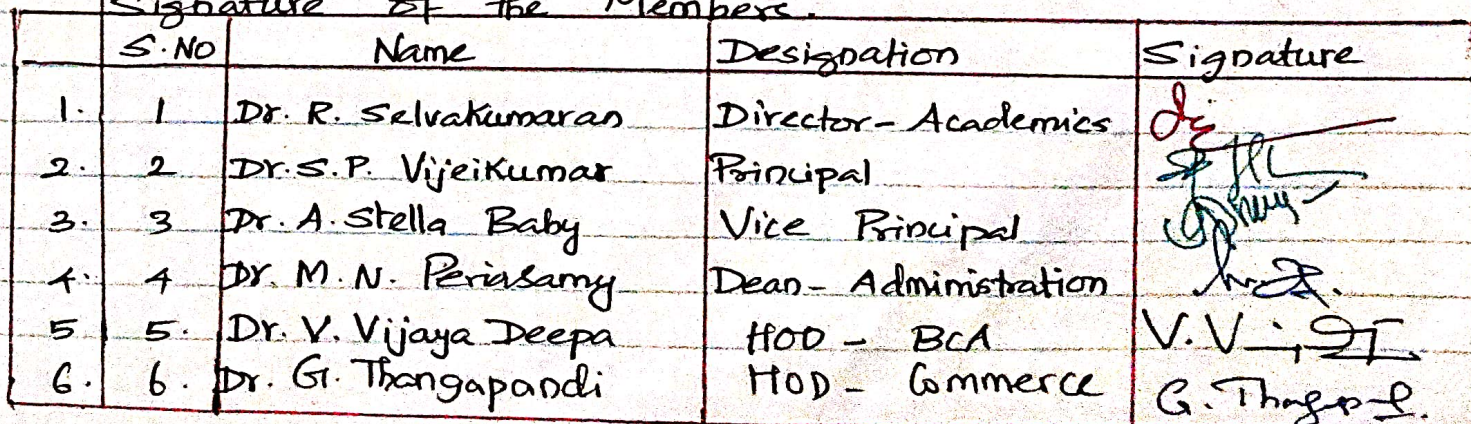 Signature of the Members.
S.NO Name Designation Signature
1. 1 Dr. R. Selvakumaran Director - Academics
2. 2 Dr. S.P. VijeiKumar Principal
3. 3 Dr. A. Stella Baby Vice Principal
4. 4 Dr. M. N. Periasamy Dean - Administration
5 5. Dr. V. Vijaya Deepa HOD - BCA V. V
6. 6. Dr. G. Thangapandi HOD - Commerce G.